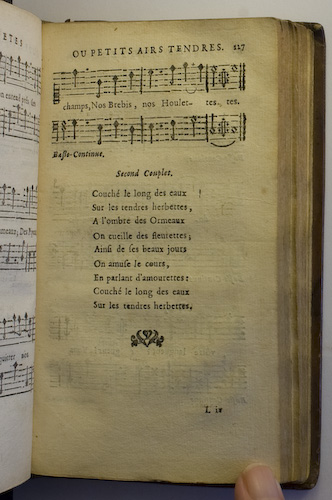 ETES
OU PETITS AIRS TENDRES. 127
champs, Nos Brebis, nos Houlet- tes. tes.
Basse-Continue.
Second Couplet.
Couché le long des eaux
Sur les tendres herbettes,
A l'ombre des Ormeaux
On cueille des fleurettes;
Ainsi de ses beaux jours
On amuse le cours,
En parlant d'amourettes:
Couché le long des eaux
Sur les tendres herbettes.
L iv